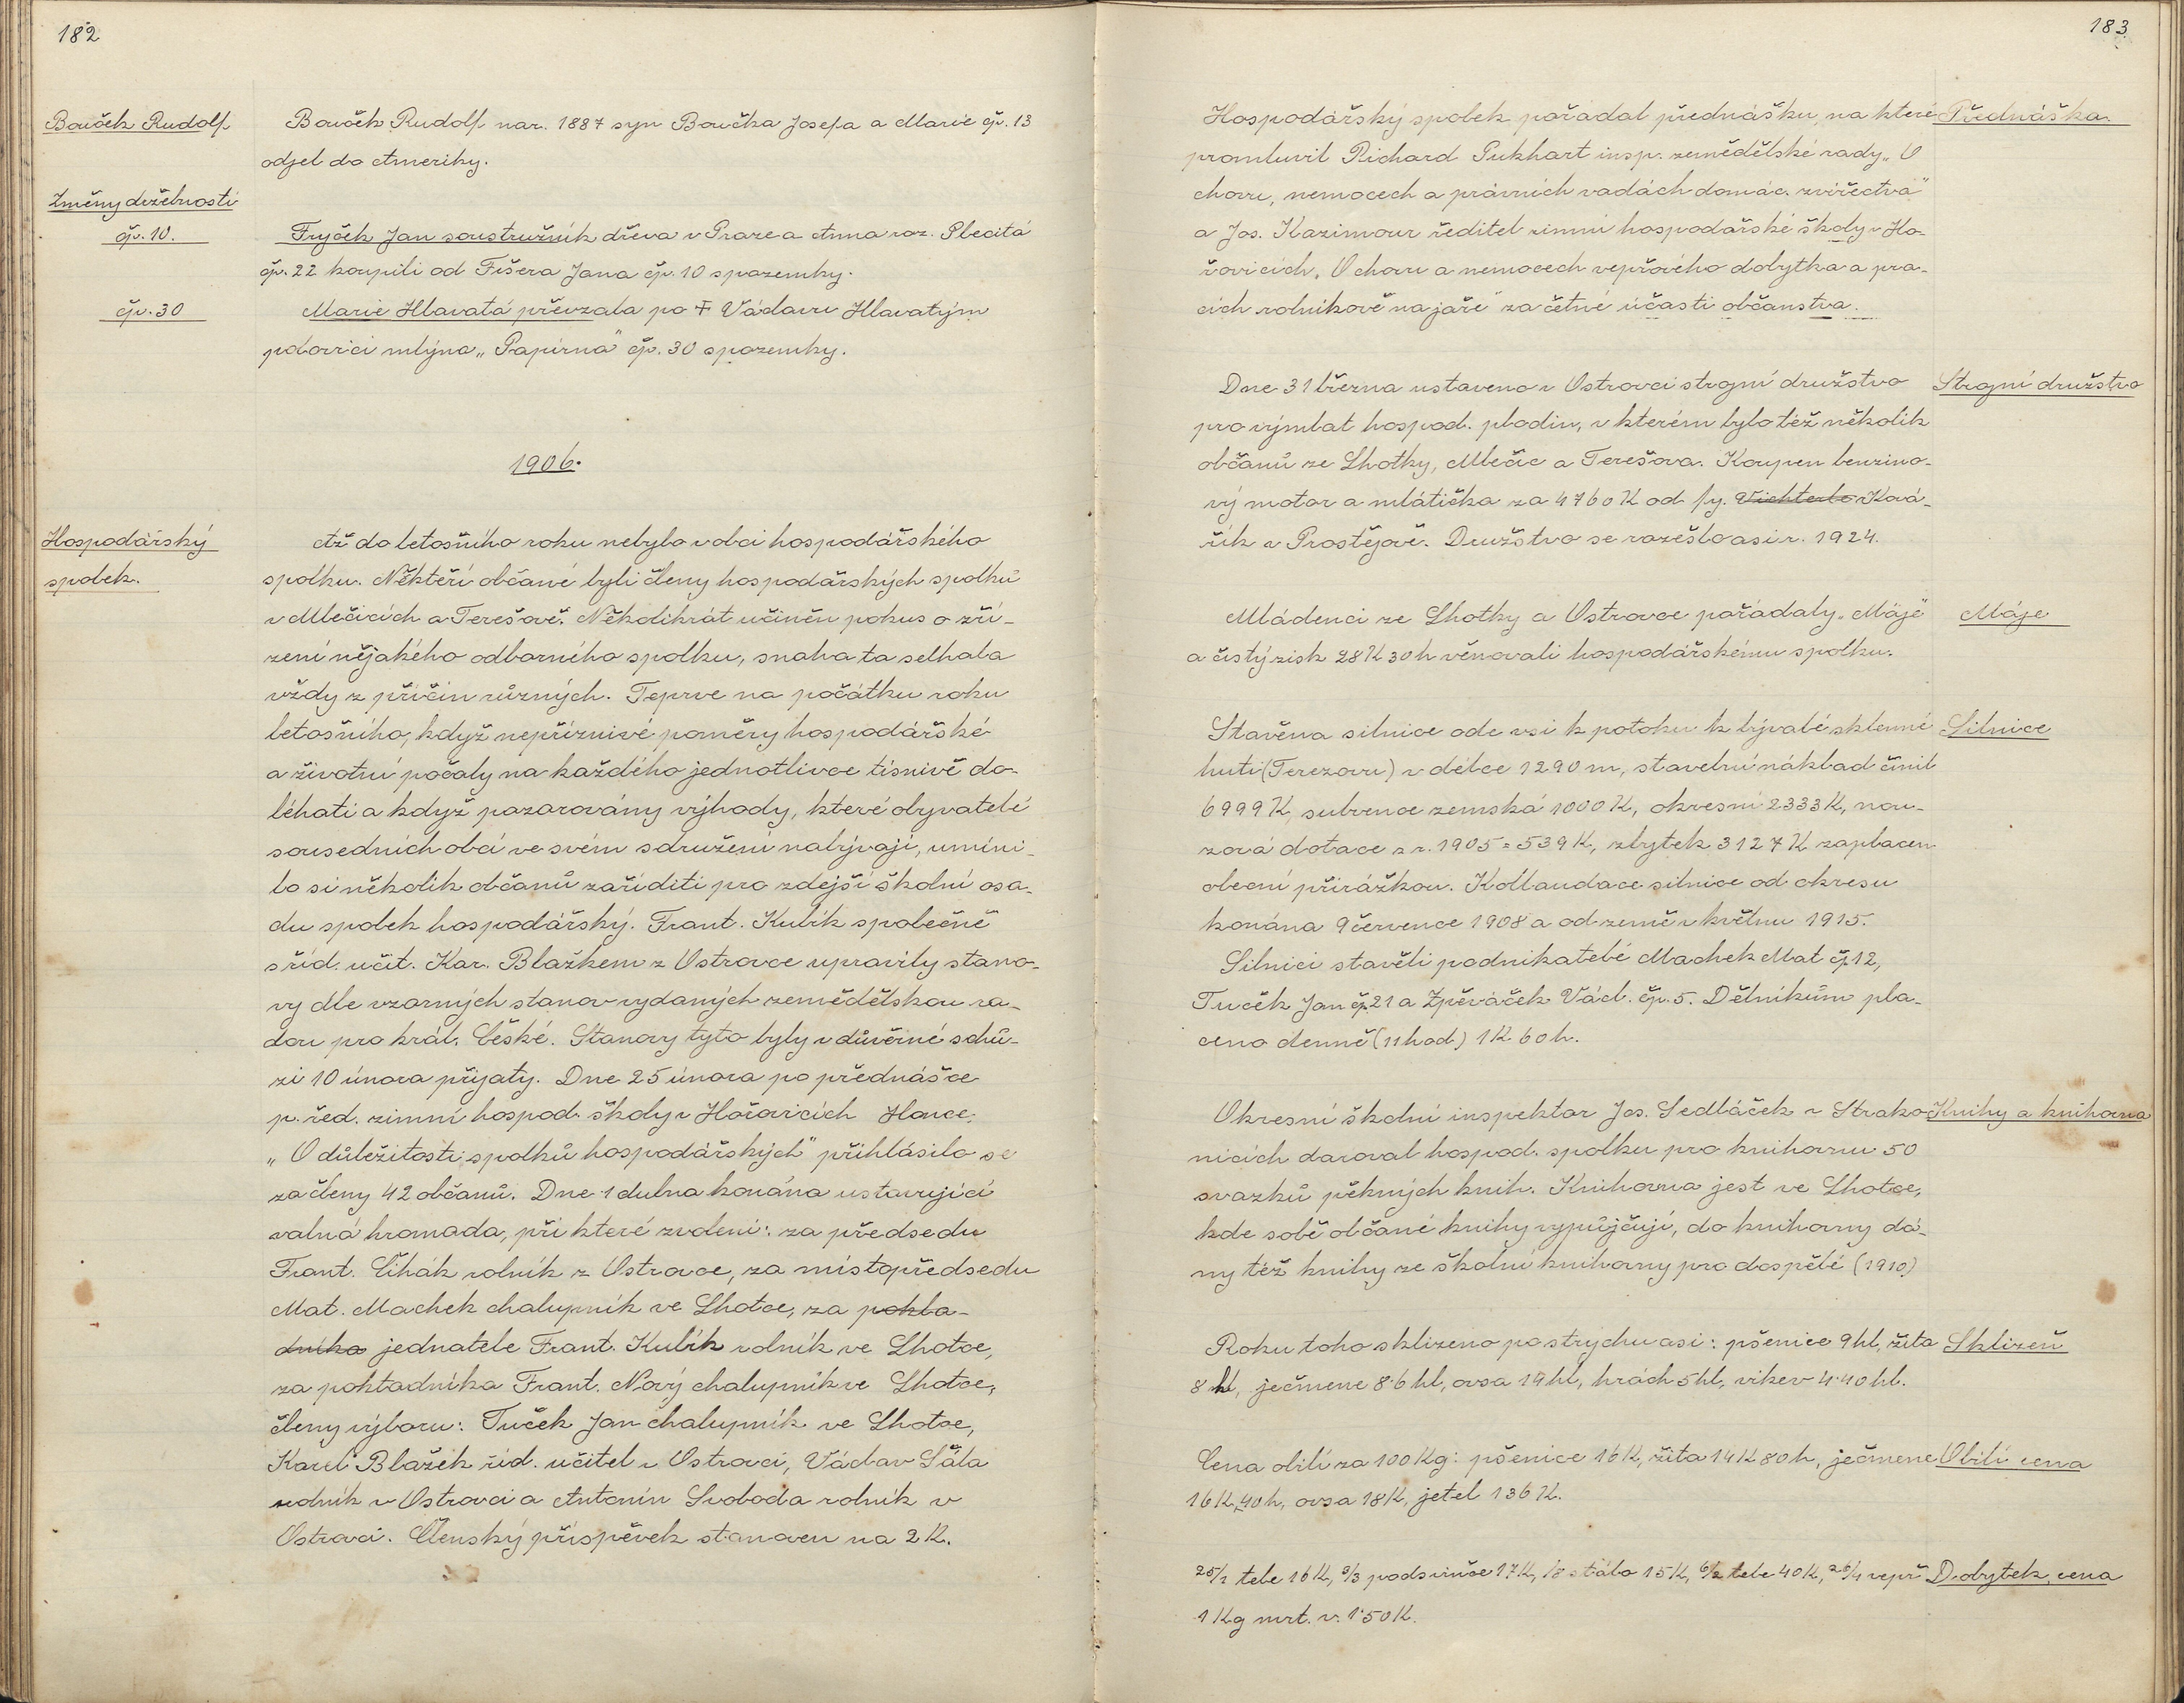 182
Bouček Rudolf
Bouček Rudolf nar. 1887 syn Boučka Josefa a Marie čp. 13
odjel do Ameriky.
Změny držebnosti
čp. 10.
Fryček Jan soustružník dřeva v Praze a Anna roz. Plecitá
čp. 22 koupili od Fišera Jana čp. 10 s pozemky.
čp. 30
Marie Hlavatá převzala po † Václavu Hlavatým
polovici mlýna „Papírna" čp. 30 s pozemky.
1906.
Hospodářský
spolek.
Až do letošního roku nebylo v obci hospodářského
spolku. Někteří občané byli členy hospodářských spolků
v Mlečicích a Terešově. Několikrát učiněn pokus o zří-
zení nějakého odborného spolku, snaha ta selhala
vždy z příčin různých. Teprve na počátku roku
letošního, když nepříznivé poměry hospodářské
a životní počaly na každého jednotlivce tísnivě do-
léhati a když pozorovány výhody, které obyvatelé
sousedních obcí ve svém sdružení nabývají, umíni-
lo si několik občanů zaříditi pro zdejší školní osa-
du spolek hospodářský. Frant. Kubík společně
s říd. učit. Kar. Blažkem z Ostrovce upravily stano-
vy dle vzorných stanov vydaných zemědělskou ra-
dou pro král. České. Stanovy tyto byly v důvěrné schů-
zi 10 února přijaty. Dne 25 února po přednášce
p. řed. zimní hospod. školy v Hořovicích Hance:
„O důležitosti spolků hospodářských" přihlásilo se
za členy 42 občanů. Dne 1 dubna konána ustavující
valná hromada, při které zvoleni: za předsedu
Frant. Čihák rolník z Ostrovce, za místopředsedu
Mat. Machek chalupník ve Lhotce, za pokla-
dníka jednatele Frant. Kubík rolník ve Lhotce,
za pokladníka Frant. Nový chalupník ve Lhotce,
členy výboru: Tuček Jan chalupník ve Lhotce,
Karel Blažek říd. učitel v Ostrovci, Václav Šála
rolník v Ostrovci a Antonín Svoboda rolník v
Ostrovci. Členský příspěvek stanoven na 2 K.
183.
Hospodářský spolek pořádal přednášku, na které
Přednáška.
promluvil Richard Pukhart insp. zemědělské rady „O
chovu, nemocech a právních vadách domác. zvířectva"
a Jos. Kazimour ředitel zimní hospodářské školy v Ho-
řovicích „O chovu a nemocech vepřového dobytka a pra-
cích rolníkově na jaře" za četné účasti občanstva.
Dne 31 března ustaveno v Ostrovci strojní družstvo
Strojní družstvo
pro výmlat hospod. plodin, v kterém bylo též několik
občanů ze Lhotky, Mlečic a Terešova. Koupen benzino-
vý motor a mlátička za 4760 K od fy. Wichterle Ková-
řík v Prostějově. Družstvo se rozešlo asi r. 1924.
Mládenci ze Lhotky a Ostrovce pořádaly „Máje"
Máje
a čistý zisk 28 K 30 h věnovali hospodářskému spolku.
Stavěna silnice ode vsi k potoku k bývalé sklenné
Silnice
huti (Terezovu) v délce 1290 m, stavební náklad činil
6999 K, subvence zemská 1000 K, okresní 2333 K, nou-
zová dotace z r. 1905 = 539 K, zbytek 3127 K zaplacen
obecní přirážkou. Kollaudace silnice od okresu
konána 9 července 1908 a od země v květnu 1915.
Silnici stavěli podnikatelé Machek Mat čp. 12,
Tuček Jan čp. 21 a Zpěváček Václ. čp. 5. Dělníkům pla-
ceno denně (11 hod.) 1 K 60 h.
Okresní školní inspektor Jos. Sedláček v Strako-
Knihy a knihovna
nicích daroval hospod. spolku pro knihovnu 50
svazků pěkných knih. Knihovna jest ve Lhotce,
kde sobě občané knihy vypůjčují, do knihovny dá-
ny též knihy ze školní knihovny pro dospělé (1910)
Roku toho sklizeno po strychu asi: pšenice 9 hl, žita
Sklizeň
8 hl, ječmene 8·6 hl, ovsa 19 hl, hrách 5 hl, vikev 4·40 hl.
Cena obilí za 100 Kg: pšenice 16 K, žita 14 K 80 h, ječmene
Obilí cena
16 K 40 h, ovsa 18 K, jetel 136 K.
25/1 tele 16 K, 3/3 podsvinče 17 K, stálo 15 K, 6/2 tele 40 K, 26/4 vepř
Dobytek, cena
1 Kg mrt. v. 1·50 K.